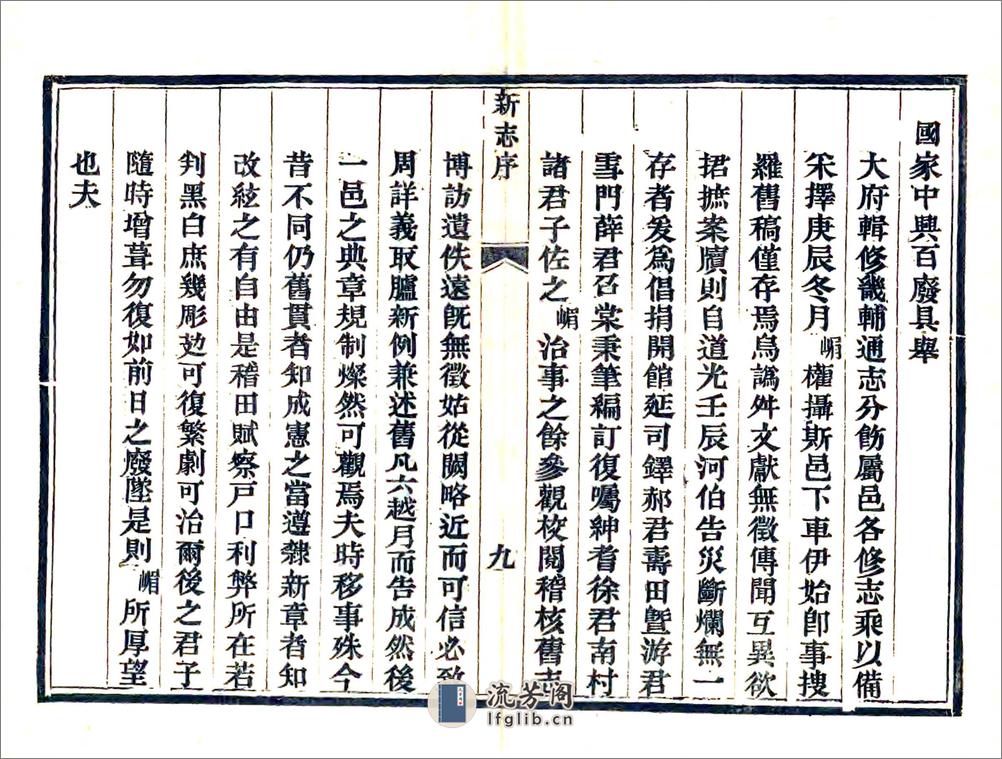 國家中興百廢具舉
大府輯修畿輔通志分飭屬邑各修志乘以備
采擇庚辰冬月嵋權攝斯邑下車伊始卽事搜
羅舊稿僅存焉烏譌舛文獻無徵傳聞互異欲
捃摭案牘則自道光壬辰河伯告災斷爛無一
存者爰爲倡捐開館延司鐸郝君壽田曁游君
雪門薛君召棠秉筆編訂復囑紳耆徐君南村
諸君子佐之嵋治事之餘參觀校閱稽核舊志
新志序
九
博訪遺佚遠旣無徵姑從闕略近而可信必致
周詳義取臚新例兼述舊凡六越月而告成然後
一邑之典章規制燦然可觀焉夫時移事殊今
昔不同仍舊貫者知成憲之當遵隸新章者知
改絃之有自由是稽田賦察戸口利弊所在若
判黑白庶幾彫攰可復繁劇可治爾後之君子
隨時增葺勿復如前日之廢墜是則嵋所厚望
也夫
流芳阁
lfglib.cn